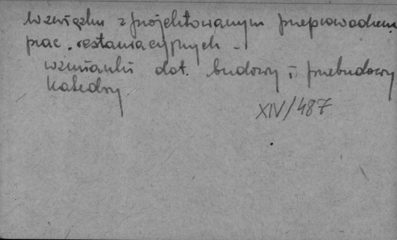 W związku z projektowanym przeprowadzeniem
prac restauracyjnych -
wzmianki dot. budowy i przebudowy
Katedry.
XIV/487